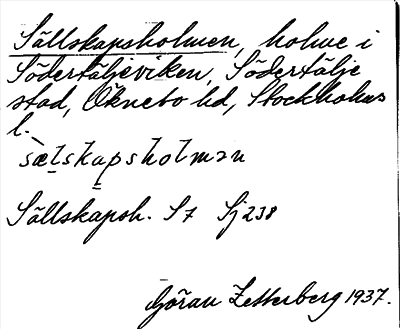 Sällskapsholmen, holme i
Södertäljeviken, Södertälje
stad, Öknebo hd, Stockholms
l.
sælskapsholmən
Sällskapsh. S7 Sj 238
Göran Zetterberg 1937.